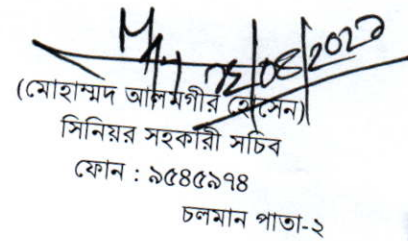 (মোহাম্মদ আলমগীর হোসেন)
সিনিয়র সহকারী সচিব
ফোন : ৯৫৪৫৯৭৪
চলমান পাতা-২